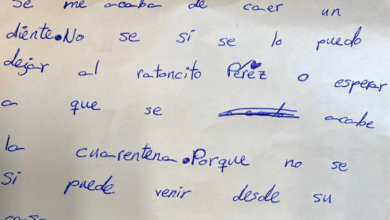 Se me acaba de caer un
diente. No se si se lo puedo
dejar al ratoncito Pérez o esperar
a que se acabe
la cuarentena. Porque no se
si puede venir desde su
casa